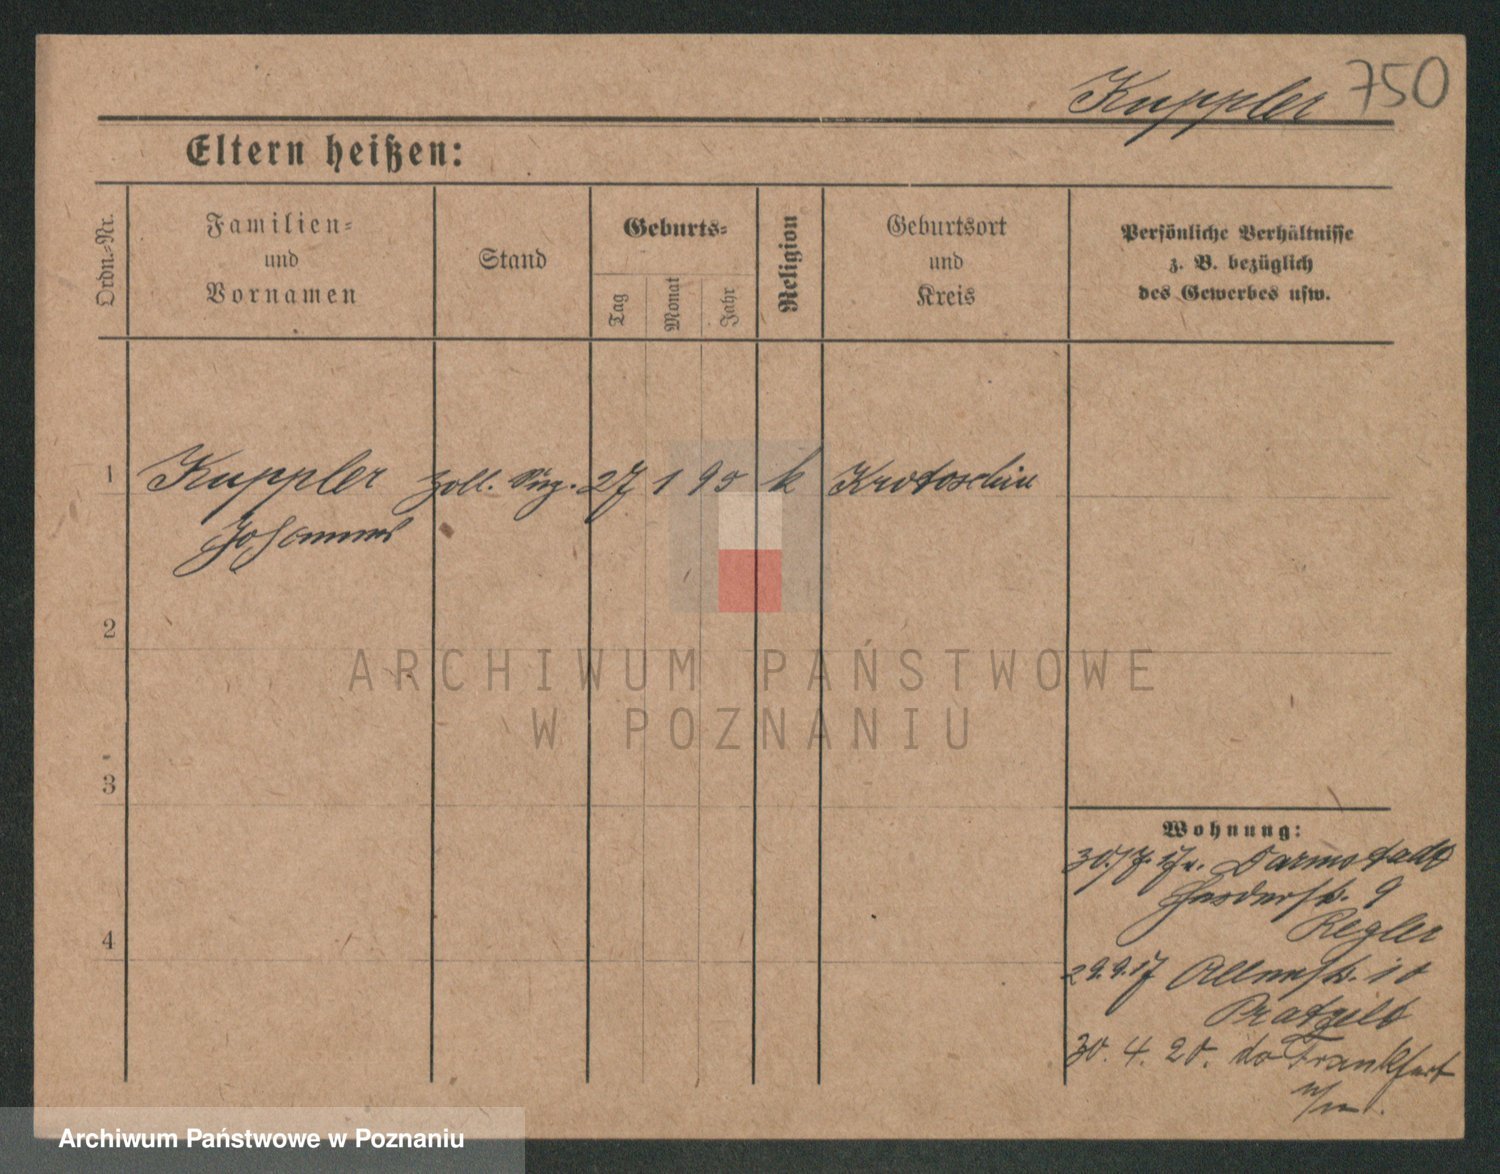 Kuppler 750
Eltern heißen:
Ordn.-Nr.
Familien-
und
Vornamen
Stand
Geburts-
Tag
Monat
Jahr
Religion
Geburtsort
und
Kreis
Persönliche Verhältnisse
z. B. bezüglich
des Gewerbes usw.
1 Kuppler Zoll. 27 1 95 k Krotoschin
Johannes
2
ARCHIWUM PAŃSTWOWE
W POZNANIU
3
Wohnung:
30. 7. 17 v. Darmstadt
9
Regler
4
29.9.17
30. 4. 20. Frankfurt
Archiwum Państwowe w Poznaniu